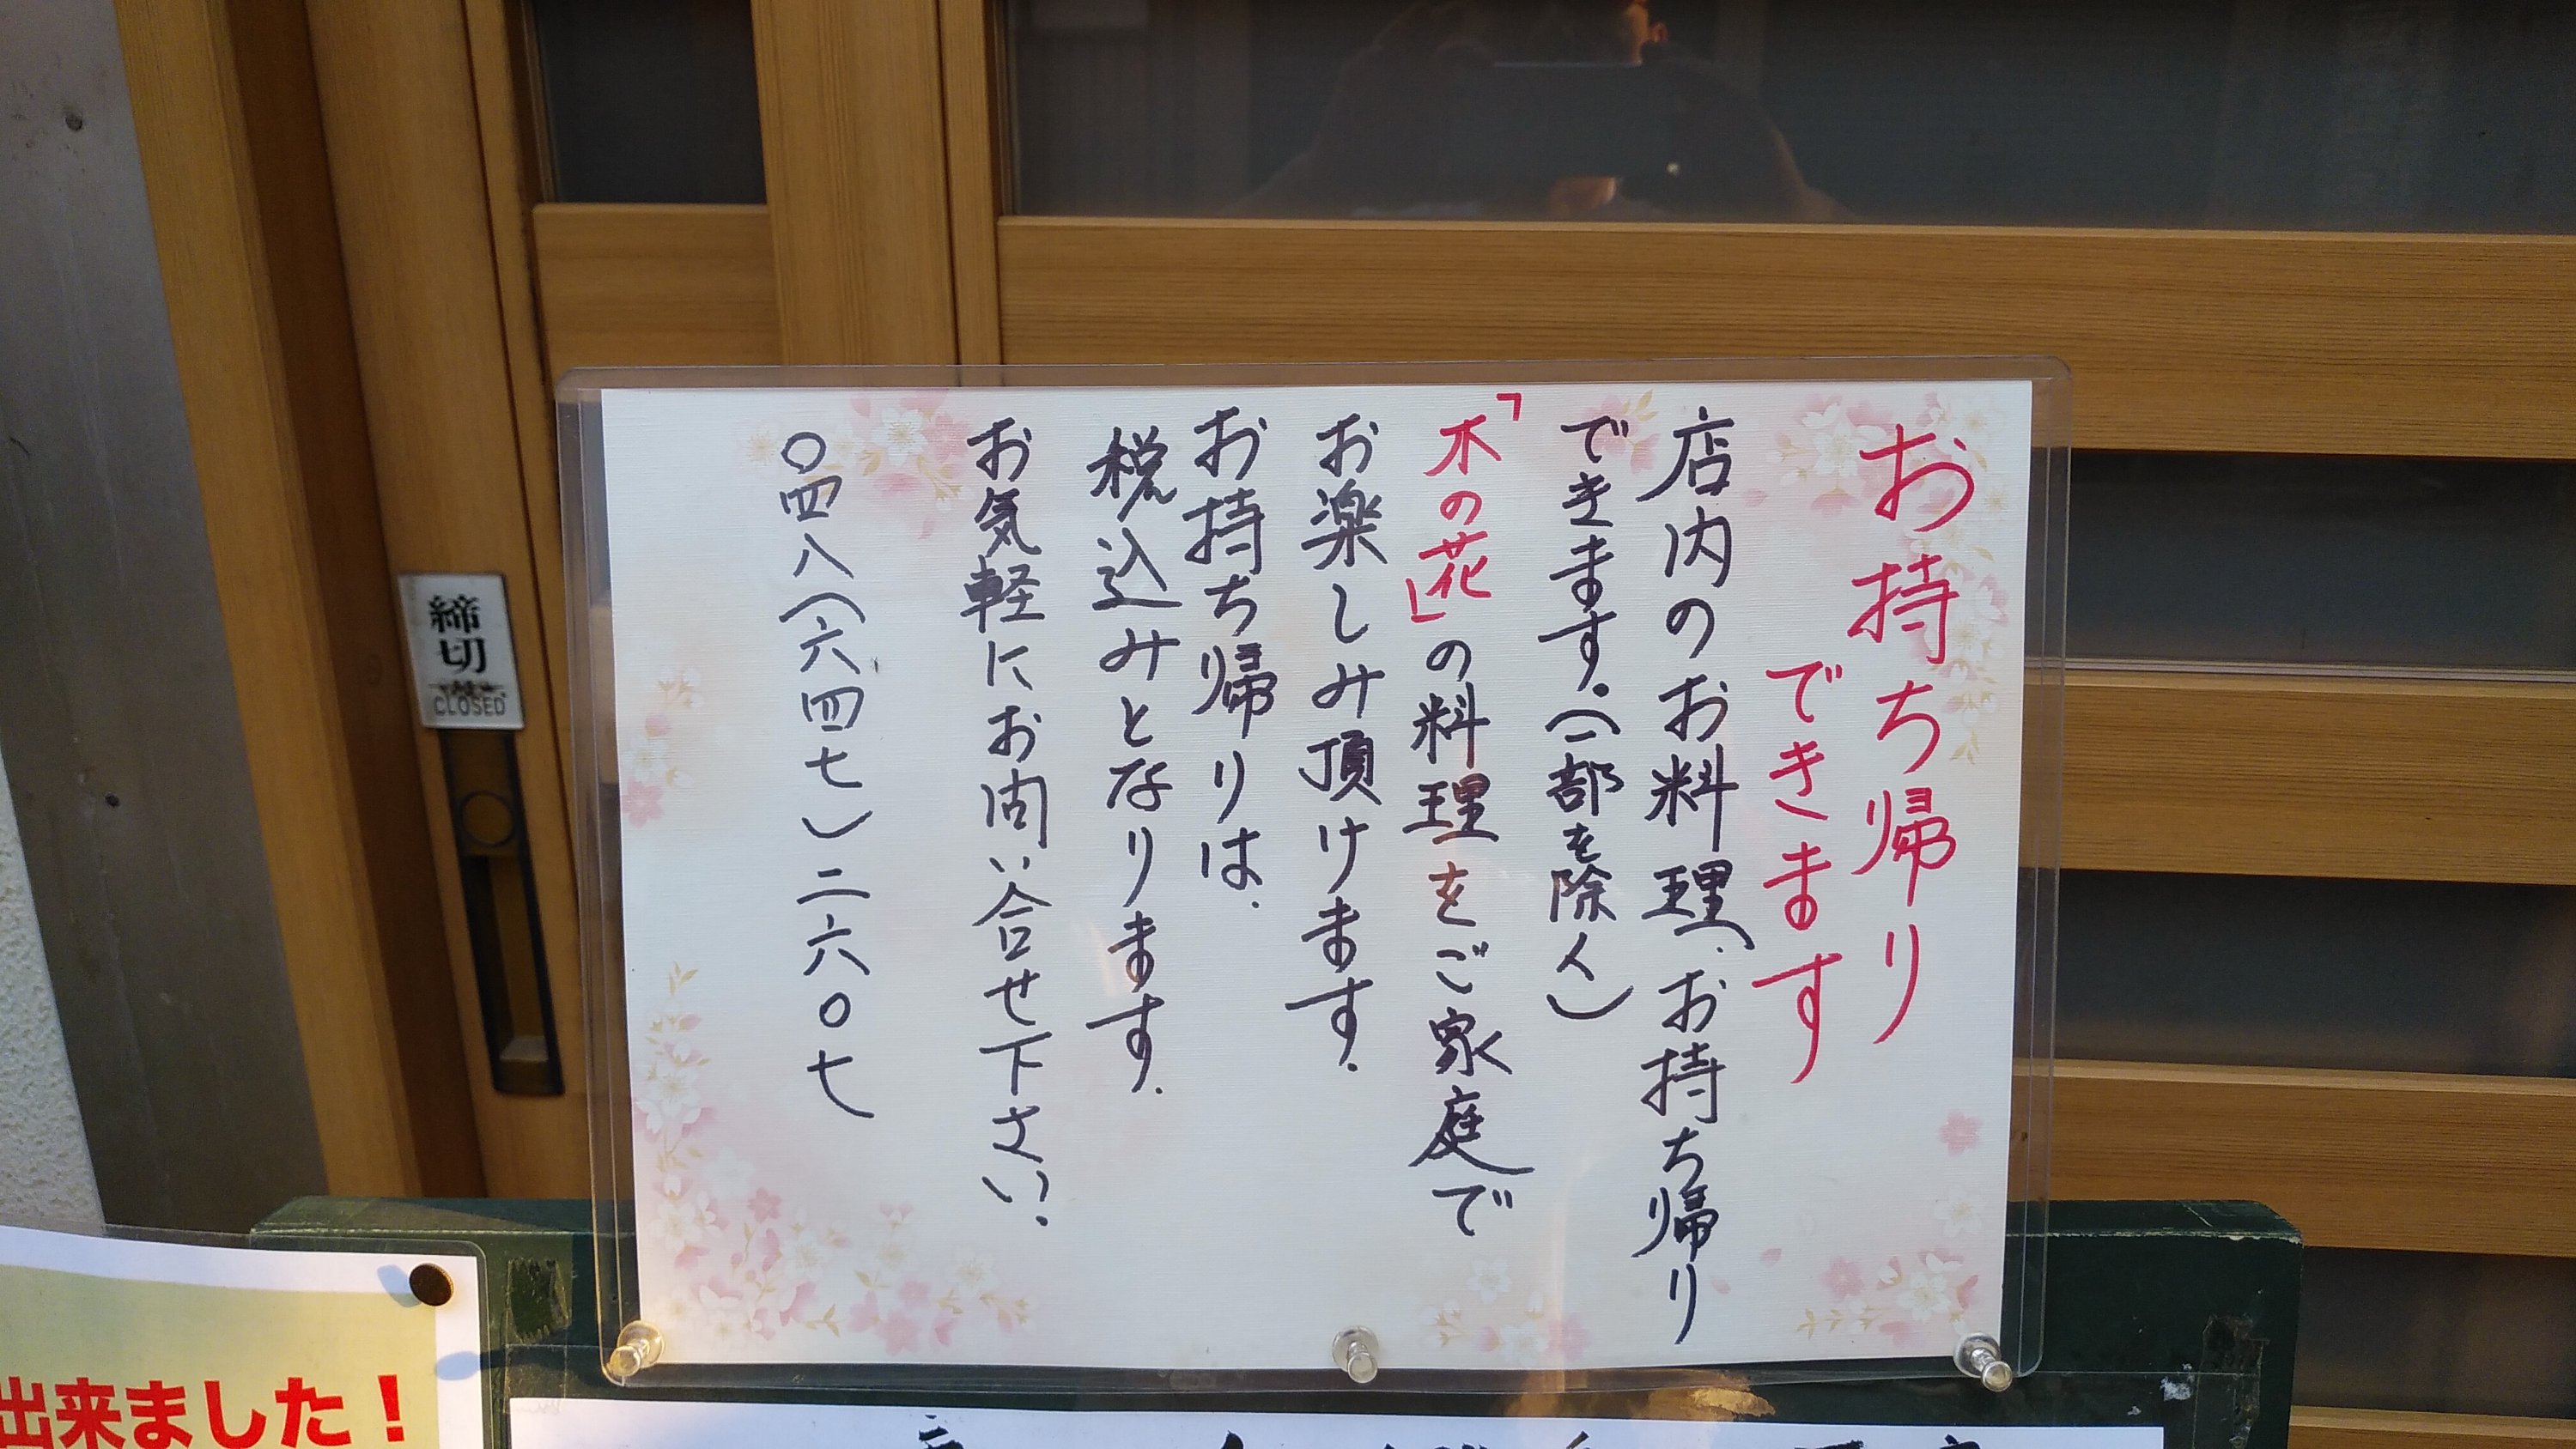 お持ち帰り
できます
店内のお料理、お持ち帰り
できます。(一部を除く)
「木の花」の料理をご家庭で
お楽しみ頂けます。
お持ち帰りは、
税込みとなります。
お気軽にお問い合せ下さい。
〇四八(六四七)二六〇七
締切
CLOSED
出来ました!